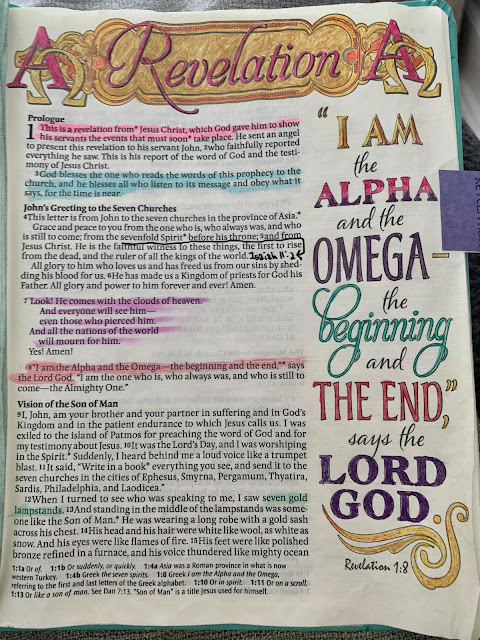 Revelation
Prologue
1 This is a revelation from* Jesus Christ, which God gave him to show
his servants the events that must soon* take place. He sent an angel
to present this revelation to his servant John, 2who faithfully reported
everything he saw. This is his report of the word of God and the testi-
mony of Jesus Christ.
3God blesses the one who reads the words of this prophecy to the
church, and he blesses all who listen to its message and obey what it
says, for the time is near.
John's Greeting to the Seven Churches
4This letter is from John to the seven churches in the province of Asia.*
Grace and peace to you from the one who is, who always was, and who
is still to come; from the sevenfold Spirit* before his throne; 5and from
Jesus Christ. He is the faithful witness to these things, the first to rise
from the dead, and the ruler of all the kings of the world. Isaiah 11:2
All glory to him who loves us and has freed us from our sins by shed-
ding his blood for us. 6He has made us a Kingdom of priests for God his
Father. All glory and power to him forever and ever! Amen.
7 Look! He comes with the clouds of heaven.
And everyone will see him—
even those who pierced him.
And all the nations of the world
will mourn for him.
Yes! Amen!
8"I am the Alpha and the Omega—the beginning and the end,"* says
the Lord God. "I am the one who is, who always was, and who is still to
come—the Almighty One."
Vision of the Son of Man
9I, John, am your brother and your partner in suffering and in God's
Kingdom and in the patient endurance to which Jesus calls us. I was
exiled to the island of Patmos for preaching the word of God and for
my testimony about Jesus. 10It was the Lord's Day, and I was worshiping
in the Spirit.* Suddenly, I heard behind me a loud voice like a trumpet
blast. 11It said, "Write in a book* everything you see, and send it to the
seven churches in the cities of Ephesus, Smyrna, Pergamum, Thyatira,
Sardis, Philadelphia, and Laodicea."
12When I turned to see who was speaking to me, I saw seven gold
lampstands. 13And standing in the middle of the lampstands was some-
one like the Son of Man.* He was wearing a long robe with a gold sash
across his chest. 14His head and his hair were white like wool, as white as
snow. And his eyes were like flames of fire. 15His feet were like polished
bronze refined in a furnace, and his voice thundered like mighty ocean
1:1a Or of. 1:1b Or suddenly, or quickly. 1:4a Asia was a Roman province in what is now
western Turkey. 1:4b Greek the seven spirits. 1:8 Greek I am the Alpha and the Omega,
referring to the first and last letters of the Greek alphabet. 1:10 Or in spirit. 1:11 Or on a scroll.
1:13 Or like a son of man. See Dan 7:13. "Son of Man" is a title Jesus used for himself.
"I AM
the
ALPHA
and the
OMEGA—
the
beginning
and
THE END,"
says the
LORD
GOD.
Revelation 1:8